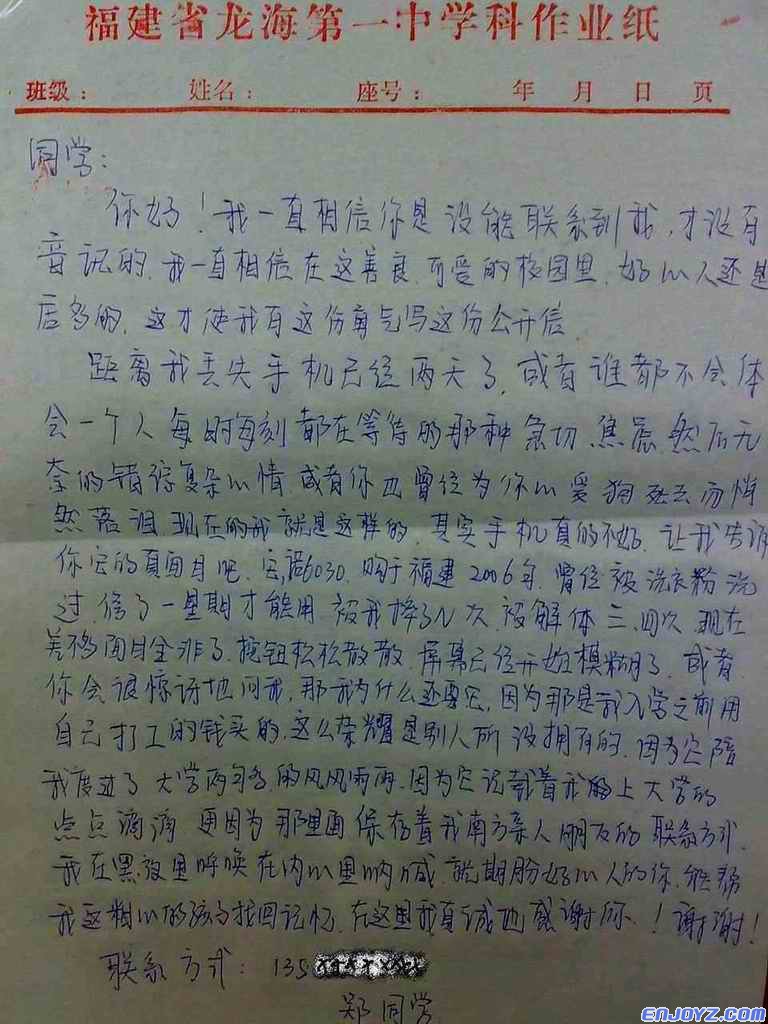 福建省龙海第一中学科作业纸
班级： 姓名： 座号： 年 月 日 页
同学：
你好！我一直相信你是没能联系到我，才没有
音讯的，我一直相信在这善良、可爱的校园里，好心人还是
居多的，这才使我有这份勇气写这份公开信
距离我丢失手机已经两天了，或者谁都不会体
会一个人每时每刻都在等待的那种急切、焦虑，然后无
奈的错综复杂心情，或者你也曾经为你心爱狗死去而悄
然落泪，现在的我就是这样的，其实手机真的不好，让我告诉
你它的真面目吧，它，诺6030，购于福建2006年，曾经被洗衣粉洗
过，修了一星期才能用，被我摔了N次，被解体三、四次，现在
差不多面目全非了，按钮松松散散，屏幕已经开始模糊了，或者
你会很惊讶地问我，那我为什么还要它，因为那是我入学之前用
自己打工的钱买的，这么荣耀是别人所没拥有的，因为它陪
我度过了大学两年多的风风雨雨，因为它记载着我的上大学的
点点滴滴，更因为那里面保存着我南方亲人朋友的联系方式，
我在黑夜里呼唤在内心里呐喊，就期盼好心人的你，能帮
我这粗心的孩子找回记忆，在这里我真诚地感谢你！谢谢！
联系方式：135
郑同学
ENJOYZ.COM